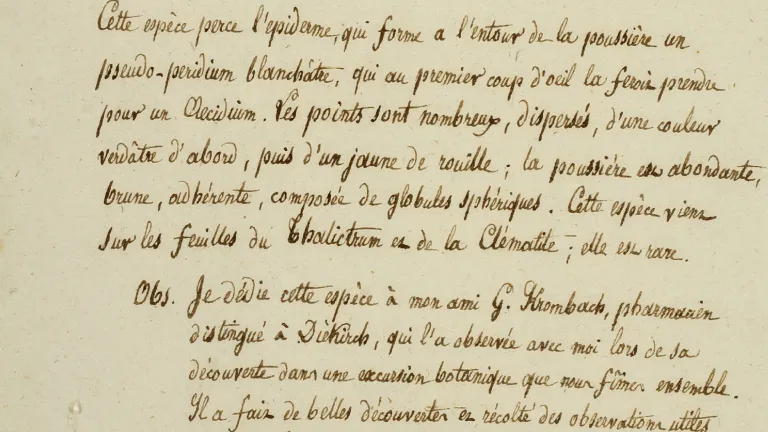 Cette espèce perce l'épiderme, qui forme a l'entour de la poussière un
pseudo-peridium blanchâtre, qui au premier coup d'oeil la feroit prendre
pour un Aecidium. Les points sont nombreux, dispersés, d'une couleur
verdâtre d'abord, puis d'un jaune de rouille; la poussière est abondante,
brune, adhérente, composée de globules sphériques. Cette espèce vient
sur les feuilles du Thalictrum et de la Clématite; elle est rare.
Obs. Je dédie cette espèce à mon ami G. Krombach, pharmacien
distingué à Diekirch, qui l'a observée avec moi lors de sa
découverte dans une excursion botanique que nous fîmes ensemble.
Il a fait de belles découvertes et récolté des observations utiles